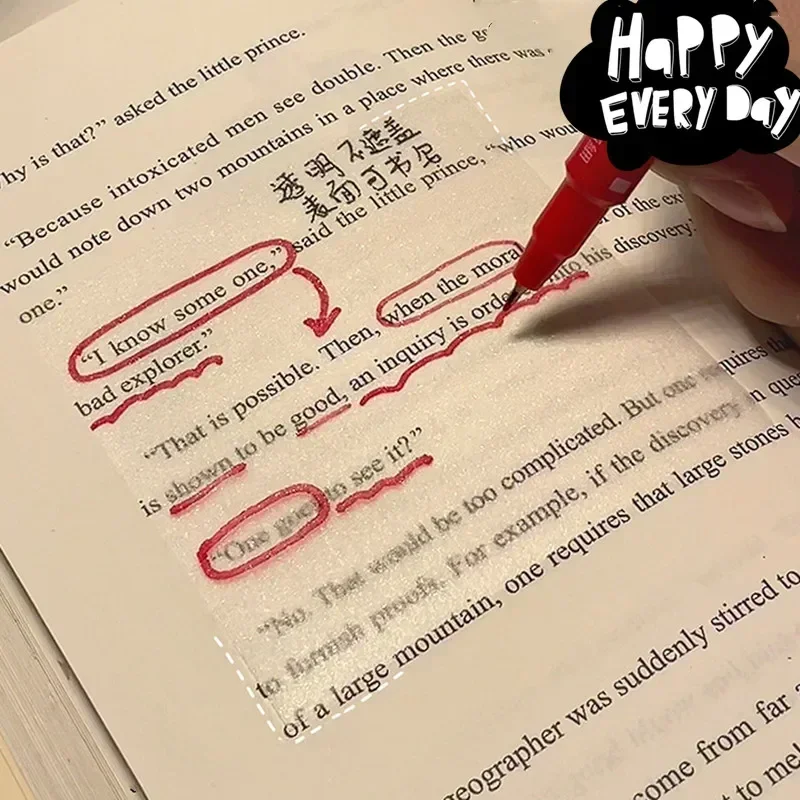 HAPPY
EVERY DAY
hy is that?” asked the little prince.
“Because intoxicated men see double. Then the
would note down two mountains in a place where there was
one.”
透明不遮盖
表面可书写
“I know some one,” said the little prince, “who
bad explorer.”
“That is possible. Then, when the moral of the
is shown to be good, an inquiry is ordered into his discovery.
“One goes to see it?”
“No. That would be too complicated. But one requires
to furnish proofs. For example, if the discovery in
of a large mountain, one requires that large stones
geographer was suddenly stirred to
come from far
to me!